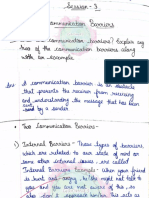 Session - 3
Communication Barriers
are communication barriers? Explain any
two of the communication barriers along
with an example
Ans A communication barrier is an obstacle
that prevents the receiver from receiving
and understanding the message that has been
sent by a sender
• Two Communication Barriers -
1) Internal Barriers - These types of barriers
which are related to our state of mind or
some other internal issues, are called
Internal Barriers Example - when your friend
is hurt and angry, he might not talk to
you and you are not aware of this, so